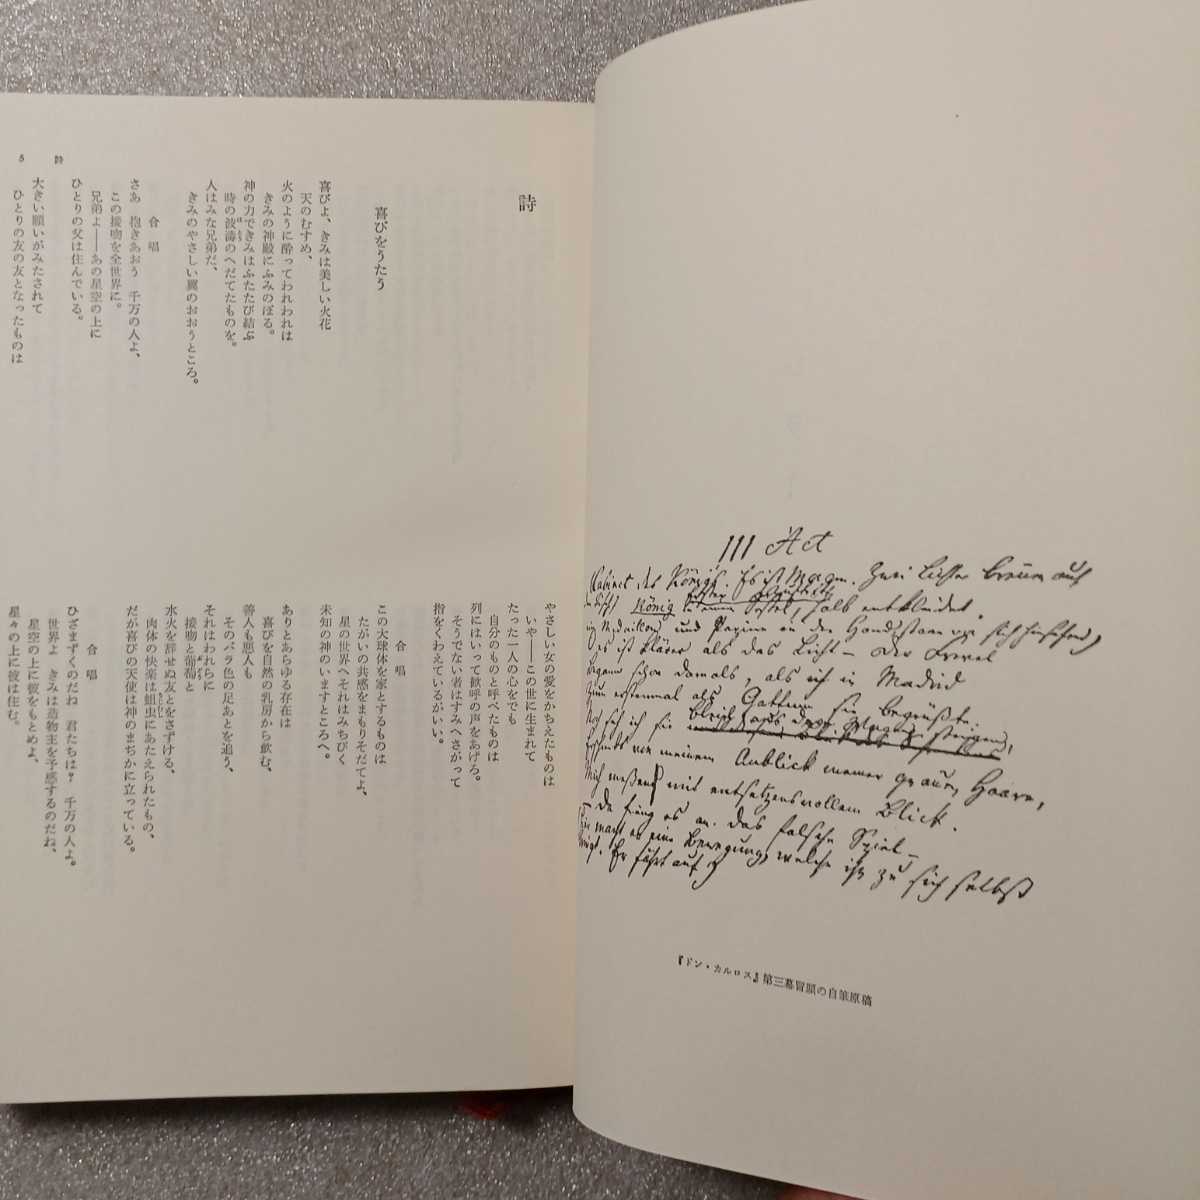 III Act
Cabinet des Königs. Es ist Morgen. Zwei Lichter brennen auf
König
halb entkleidet.
es ist klärer als das Licht —
schon damals, als ich in Madrid
zum erstenmal als Gattinn sie begrüßte.
Noch seh ich sie
von meinem Anblick meiner grauen Haare,
Mich meßen mit entsetzensvollem Blick.
— da fieng es an. das falsche Spiel —
macht er eine Bewegung, welche ihn zu sich selbst
Er fährt auf
『ドン・カルロス』第三幕冒頭の自筆原稿
詩
喜びをうたう
喜びよ、きみは美しい火花
天のむすめ、
火のように酔ってわれわれは
きみの神殿にふみのぼる。
神の力できみはふたたび結ぶ
時の波濤のへだてたものを。
人はみな兄弟だ、
きみのやさしい翼のおおうところ。
合唱
さあ 抱きあおう 千万の人よ、
この接吻を全世界に。
兄弟よ――あの星空の上に
ひとりの父は住んでいる。
大きい願いがみたされて
ひとりの友の友となったものは
やさしい女の愛をかちえたものは
いや――この世に生まれて
たった一人の心をでも
自分のものと呼べたものは
列にはいって歓呼の声をあげろ。
そうでない者はすみへさがって
指をくわえているがいい。
合唱
この大球体を家とするものは
たがいの共感をまもりそだてよ、
星の世界へそれはみちびく
未知の神のいますところへ。
ありとあらゆる存在は
喜びを自然の乳房から飲む、
善人も悪人も
そのバラ色の足あとを追う、
それはわれらに
接吻と葡萄と
水火を辞せぬ友とをさずける、
肉体の快楽は蛆虫にあたえられたもの、
だが喜びの天使は神のまぢかに立っている。
合唱
ひざまずくのだね 君たちは? 千万の人よ。
世界よ きみは造物主を予感するのだね、
星空の上に彼をもとめよ、
星々の上に彼は住む。
詩
5